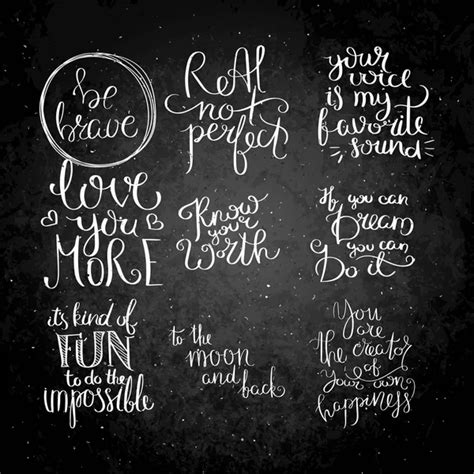 be
brave
ReAl
not
perfect
your
voice
is my
favorite
sound
love
you
MORE
Know
your
Worth
If you can
Dream
you can
Do it
it's kind of
FUN
to do the
impossible
to the
moon
and
back
You
are
the creator
of
your own
happiness